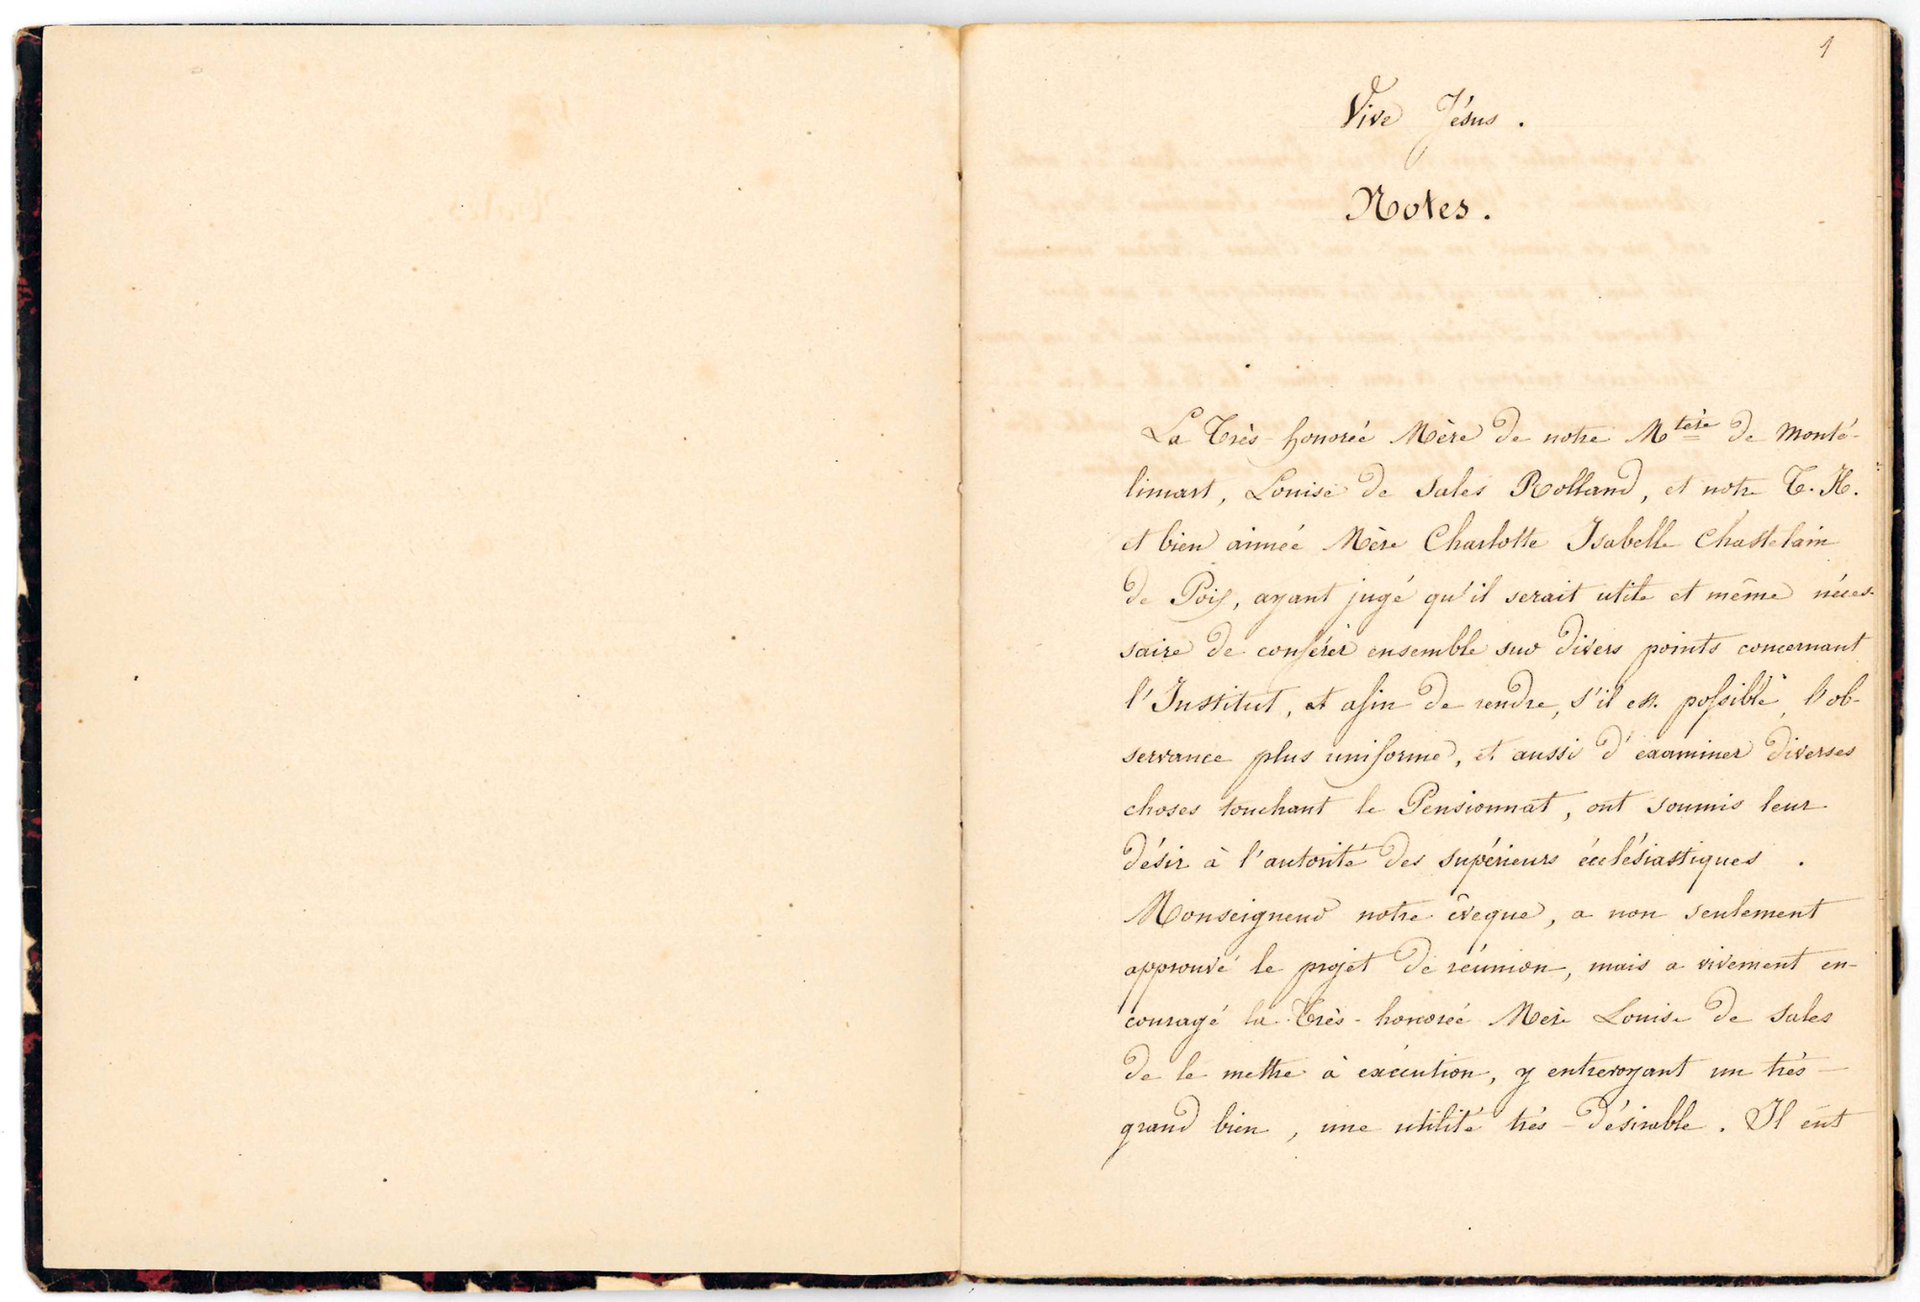 1
Vive Jésus.
Notes.
La Très-honorée Mère de notre Mtère de Monté-
limart, Louise de Sales Rolland, et notre T. H.
et bien aimée Mère Charlotte Isabelle Chastelain
de Poix, ayant jugé qu'il serait utile et même néces-
saire de conférer ensemble sur divers points concernant
l'Institut, et afin de rendre, s'il est possible, l'ob-
servance plus uniforme, et aussi d'examiner diverses
choses touchant le Pensionnat, ont soumis leur
désir à l'autorité des supérieurs écclésiastiques.
Monseigneur notre évêque, a non seulement
approuvé le projet de réunion, mais a vivement en-
couragé la Très-honorée Mère Louise de Sales
de le mettre à exécution, y entrevoyant un très-
grand bien, une utilité très-désirable. Il eût